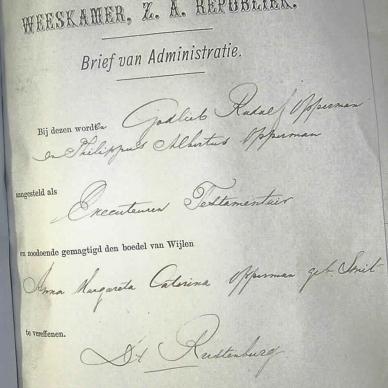 WEESKAMER, Z. A. REPUBLIEK.
Brief van Administratie.
Bij dezen worden Godlieb Rudolf Opperman
en Philippus Albertus Opperman
aangesteld als
Executeuren Testamentair
en zoodoende gemagtigd den boedel van Wijlen
Anna Margareta Caterina Opperman geb. Smit
te vereffenen.
Dt Rustenburg